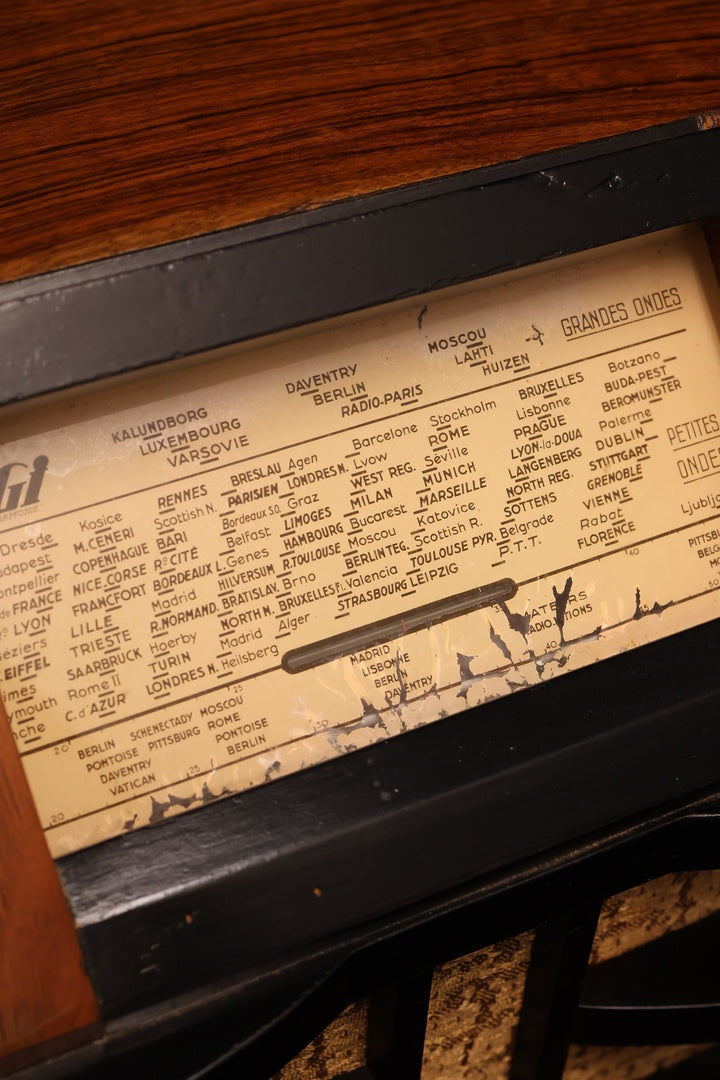 GRANDES ONDES
MOSCOU
LAHTI
HUIZEN
DAVENTRY
BERLIN
RADIO-PARIS
KALUNDBORG
LUXEMBOURG
VARSOVIE
Gi
Dresde
FRANCE
LYON
EIFFEL
Kosice
M.CENERI
COPENHAGUE
NICE.CORSE
FRANCFORT
LILLE
TRIESTE
SAARBRUCK
Rome II
C.d'AZUR
RENNES
Scottish N.
BARI
Rº CITÉ
BORDEAUX L.
Madrid
R.NORMAND.
Hoerby
TURIN
LONDRES N.
BRESLAU
PARISIEN
Bordeaux S.O.
Belfast
Genes
HILVERSUM
BRATISLAV.
NORTH N.
Madrid
Heilsberg
Agen
LONDRES N.
Graz
LIMOGES
HAMBOURG
R.TOULOUSE
Brno
BRUXELLES F.
Alger
Barcelone
Lvow
WEST REG.
MILAN
Bucarest
Moscou
BERLIN TEG.
Valencia
STRASBOURG
Stockholm
ROME
Séville
MUNICH
MARSEILLE
Katovice
Scottish R.
TOULOUSE PYR.
LEIPZIG
BRUXELLES
Lisbonne
PRAGUE
LYON-la-DOUA
LANGENBERG
NORTH REG.
SOTTENS
Belgrade
P.T.T.
Botzano
BUDA-PEST
BEROMUNSTER
Palerme
DUBLIN
STUTTGART
GRENOBLE
VIENNE
Rabat
FLORENCE
PETITES
ONDES
20
25
40
BERLIN SCHENECTADY MOSCOU
PONTOISE PITTSBURG ROME
DAVENTRY PONTOISE
VATICAN BERLIN
MADRID
LISBONNE
BERLIN
DAVENTRY
20
25
30
40
50